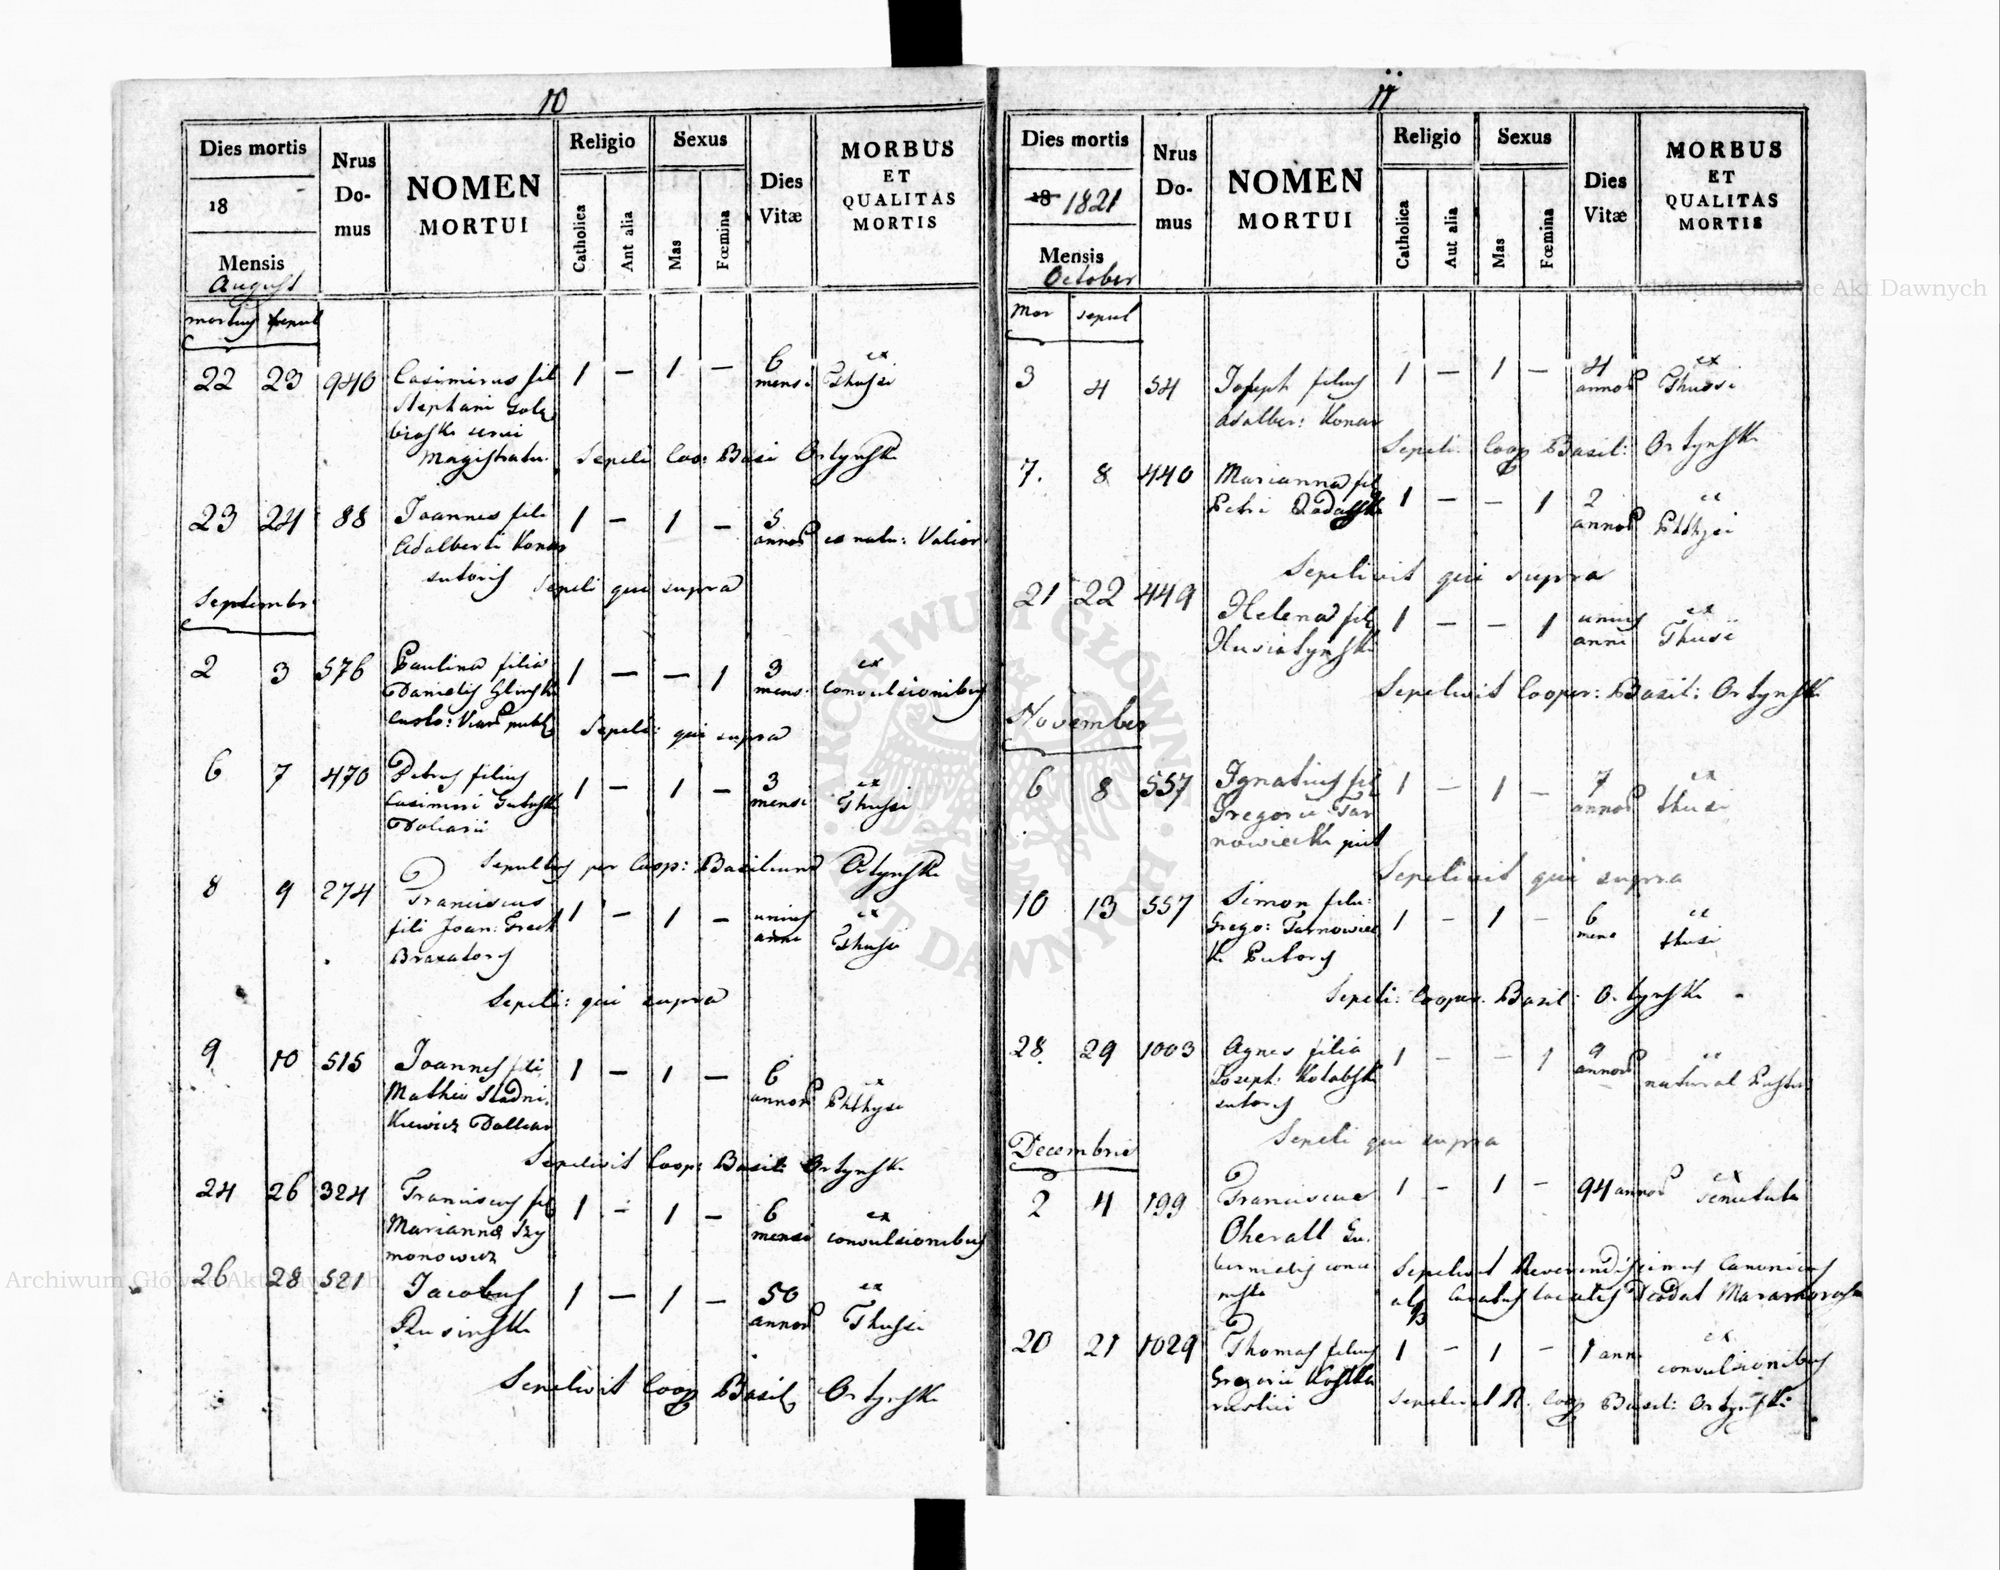 10
Dies mortis
18
Mensis
August
Nrus Do- mus
NOMEN MORTUI
Religio
Catholica
Aut alia
Sexus
Mas
Fœmina
Dies Vitæ
MORBUS ET QUALITAS MORTIS
mortuus sepul
22 23 940 Casimirus fil 1 – 1 – 6 mensi ex Thussi
Stephani
Magistratu. Sepeli Coo: Basi Ortynski
23 24 88 Joannes fili 1 – 1 – 5 annor
Adalberti Konar
sutoris Sepeli qui supra
Septembr:
2 3 576 Paulina filia 1 – – 1 3 mens: ex convulsionibus
Danielis Glinski
Sepeli: qui supra
6 7 470 Petrus filius 1 – 1 – 3 mensi ex Thussi
Casimiri
Doliarii
Sepultus per Coop: Basilium Ortynski
8 9 274 Franciscus 1 – 1 – unius anni ex Thussi
fili Joan:
Braxatoris
Sepeli: qui supra
9 10 515 Joannes fili 1 – 1 – 6 annor ex Phthysi
Mathiae Stadni.
kiewicz Doliar
Sepelivit Coop: Basili Ortynski
24 26 324 Franciscus fil 1 – 1 – 6 mensi ex convulsionibus
Marianna Szy
monowicz
26 28 521 Jacobus 1 – 1 – 50 annor ex Thussi
Rusinski
Sepelivit Coop Basil Ortynski
11
Dies mortis
18 1821
Mensis
October
Nrus Do- mus
NOMEN MORTUI
Religio
Catholica
Aut alia
Sexus
Mas
Fœmina
Dies Vitæ
MORBUS ET QUALITAS MORTIS
mor sepul
3 4 54 Joseph filius 1 – 1 – 4 annor ex Thussi
Adalber: Konar
Sepeli: Coop Basil: Ortynski
7. 8 440 Marianna fil 1 – – 1 2 annor ex Phthysi
Petri
Sepelivit qui supra
21 22 449 Helena fil 1 – – 1 unius anni ex Thusi
Husiatynski
Sepelivit Cooper: Basil: Ortynski
November
6 8 557 Ignatius fil 1 – 1 – 7 annor ex thusi
Gregorii Tar
nowiecki pict
Sepelivit qui supra
10 13 557 Simon filu: 1 – 1 – 6 mens ex thusi
Grego: Tarnowiec
ki Pictoris
Sepeli: Cooper. Basil: Ortynski
28. 29 1003 Agnes filia 1 – – 1 9 annor ex natural
Joseph:
sutoris
Sepeli qui supra
Decembris
2 4 199 Franciscus 1 – 1 – 94 annor ex senectute
Oherall Gu.
bernialis
Sepelivit Reverendissimus Canonicus
Curatus Deodat
20 21 1029 Thomas filius 1 – 1 – 1 ann ex convulsionibus
Gregorii Kostka
rustici
Sepelivit R. Coop Basil: Ortynski
Archiwum Główne Akt Dawnych
Archiwum Główne Akt Dawnych
ARCHIWUM GŁÓWNE AKT DAWNYCH